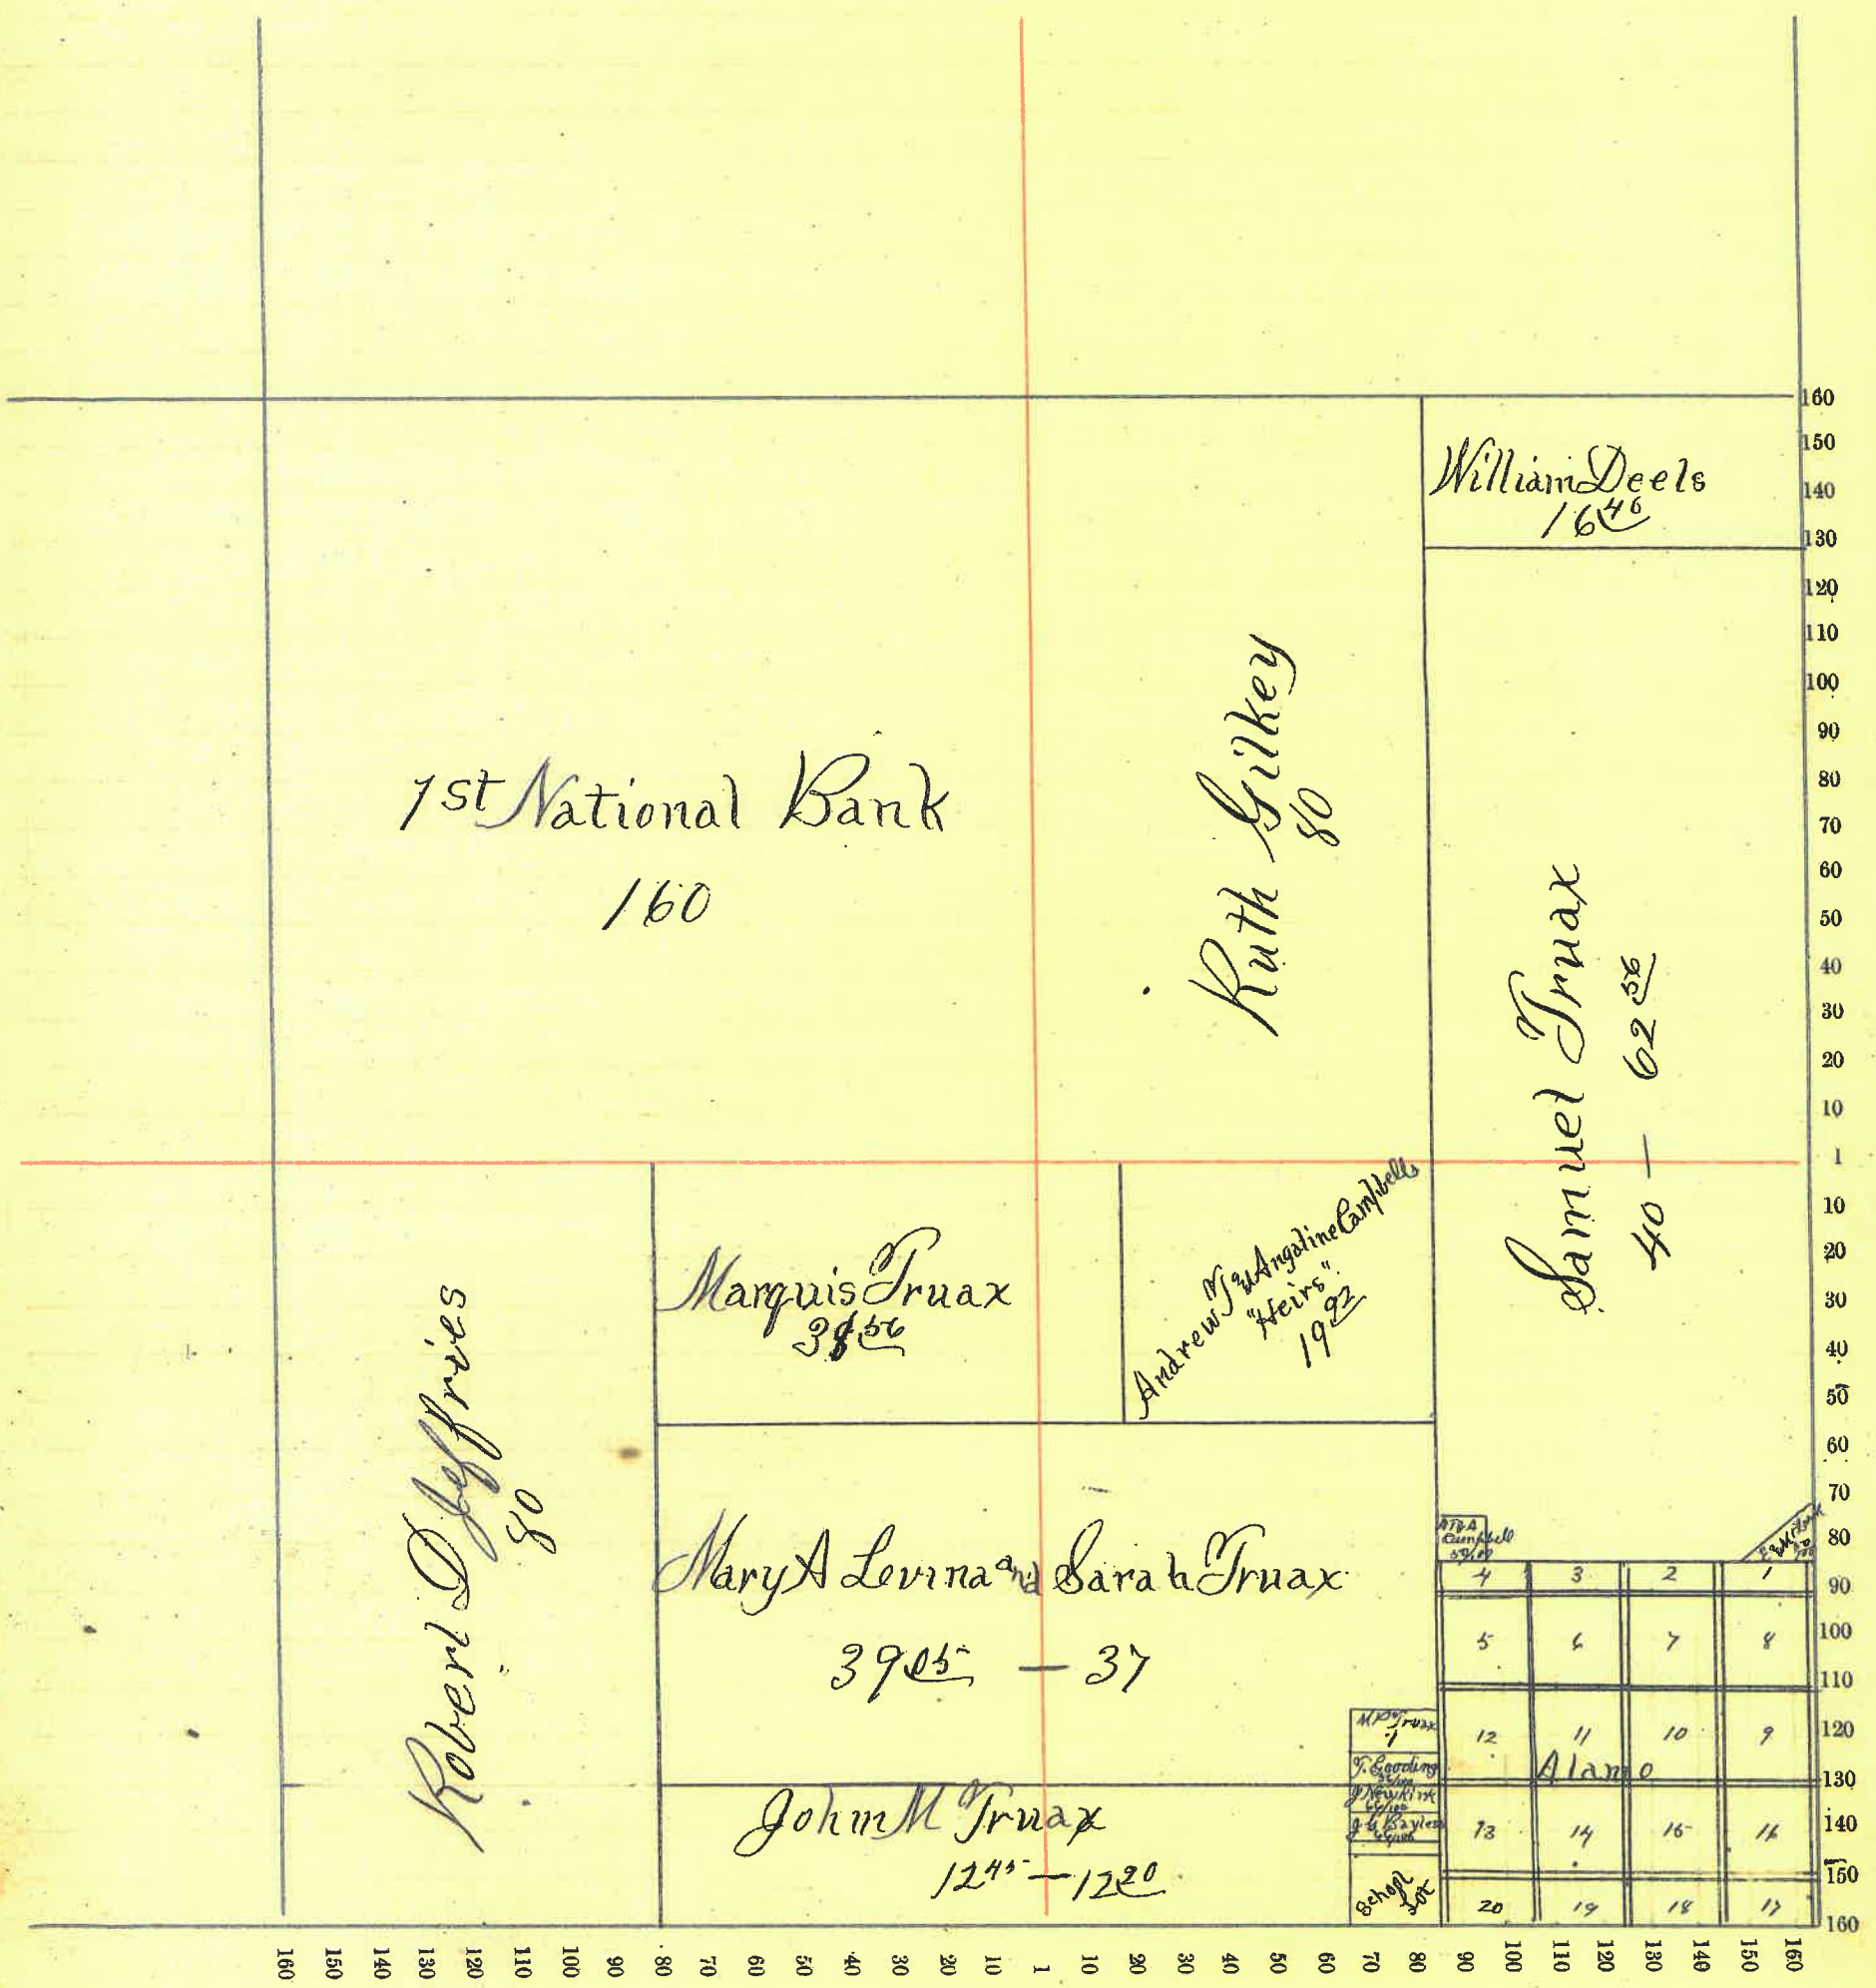 William Deels
16 46
1st National Bank
160
Ruth Gilkey
80
Samuel Truax
40 — 62 56
Marquis Truax
56
Andrew T & Angaline Campbells
"Heirs"
19 92
Robert D Jeffries
80
Mary A Levina and Sarah Truax
39 05 — 37
John M Truax
12 45 — 12 20
Campbell
4 3 2 1
5 6 7 8
12 11 10 9
Alamo
13 14 15 16
20 19 18 17
M P Truax
1
T. Gooding
J Newkirk
J Bayless
School Lot
160
150
140
130
120
110
100
90
80
70
60
50
40
30
20
10
1
10
20
30
40
50
60
70
80
90
100
110
120
130
140
150
160
160 150 140 130 120 110 100 90 80 70 60 50 40 30 20 10 1 10 20 30 40 50 60 70 80 90 100 110 120 130 140 150 160